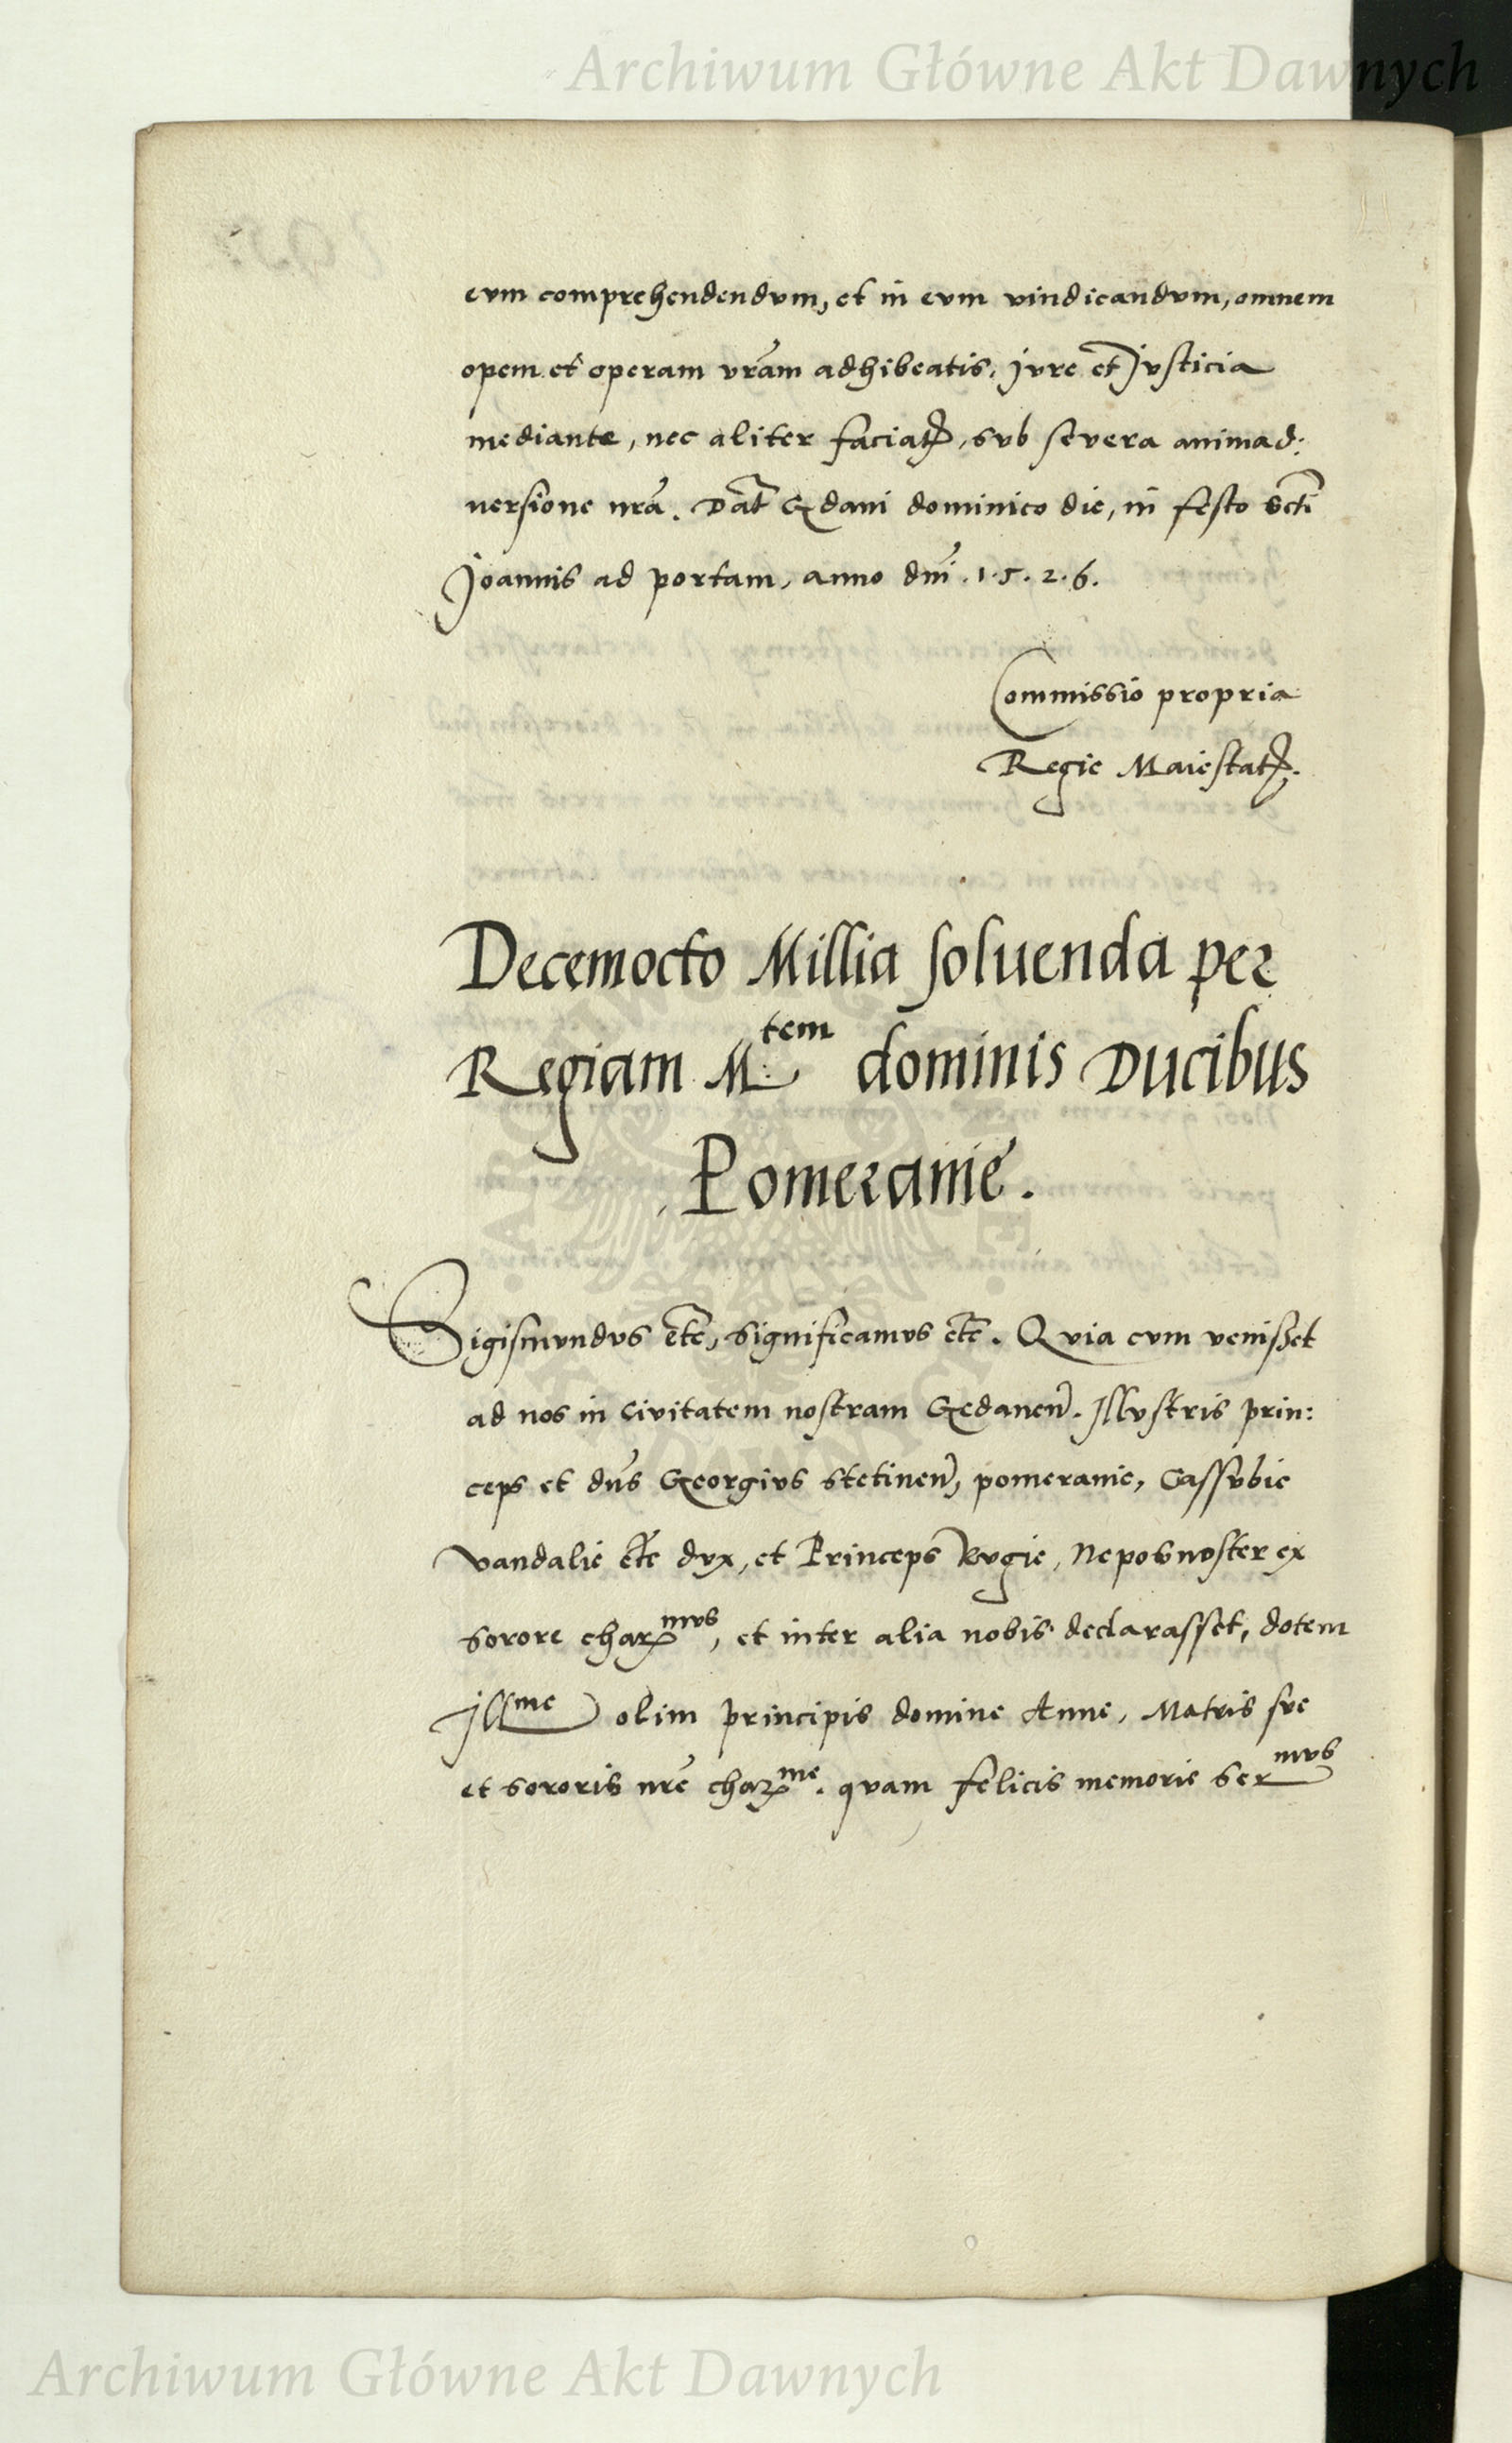 Archiwum Główne Akt Dawnych
eum comprehendendum, et in eum vindicandum, omnem
opem et operam vrãm adhibeatis, Jure et Justicia
mediante, nec aliter faciatꝭ, sub severa animad:
versione nrã. Dat̃ Gdani dominico die, in festo Scti
Joannis ad portam, anno dnĩ .1.5.2.6.
Commissio propria
Regie Maiestatꝭ.
Decemocto Millia soluenda per
Regiam M:tem dominis Ducibus
Pomeranie.
Sigismundus etc̃, significamus etc̃. Quia cum venisset
ad nos in Civitatem nostram Gedaneñ. Illustris prin:
ceps et dñs Georgius Stetineñ, pomeranie, Cassubie
Vandalie etc̃ dux, et Princeps Rugie, Nepos noster ex
sorore charmus, et inter alia nobis declarasset, dotem
Illme olim principis domine Anne, Matris sue
et sororis nrẽ charme. quam felicis memorie Sermus
Archiwum Główne Akt Dawnych